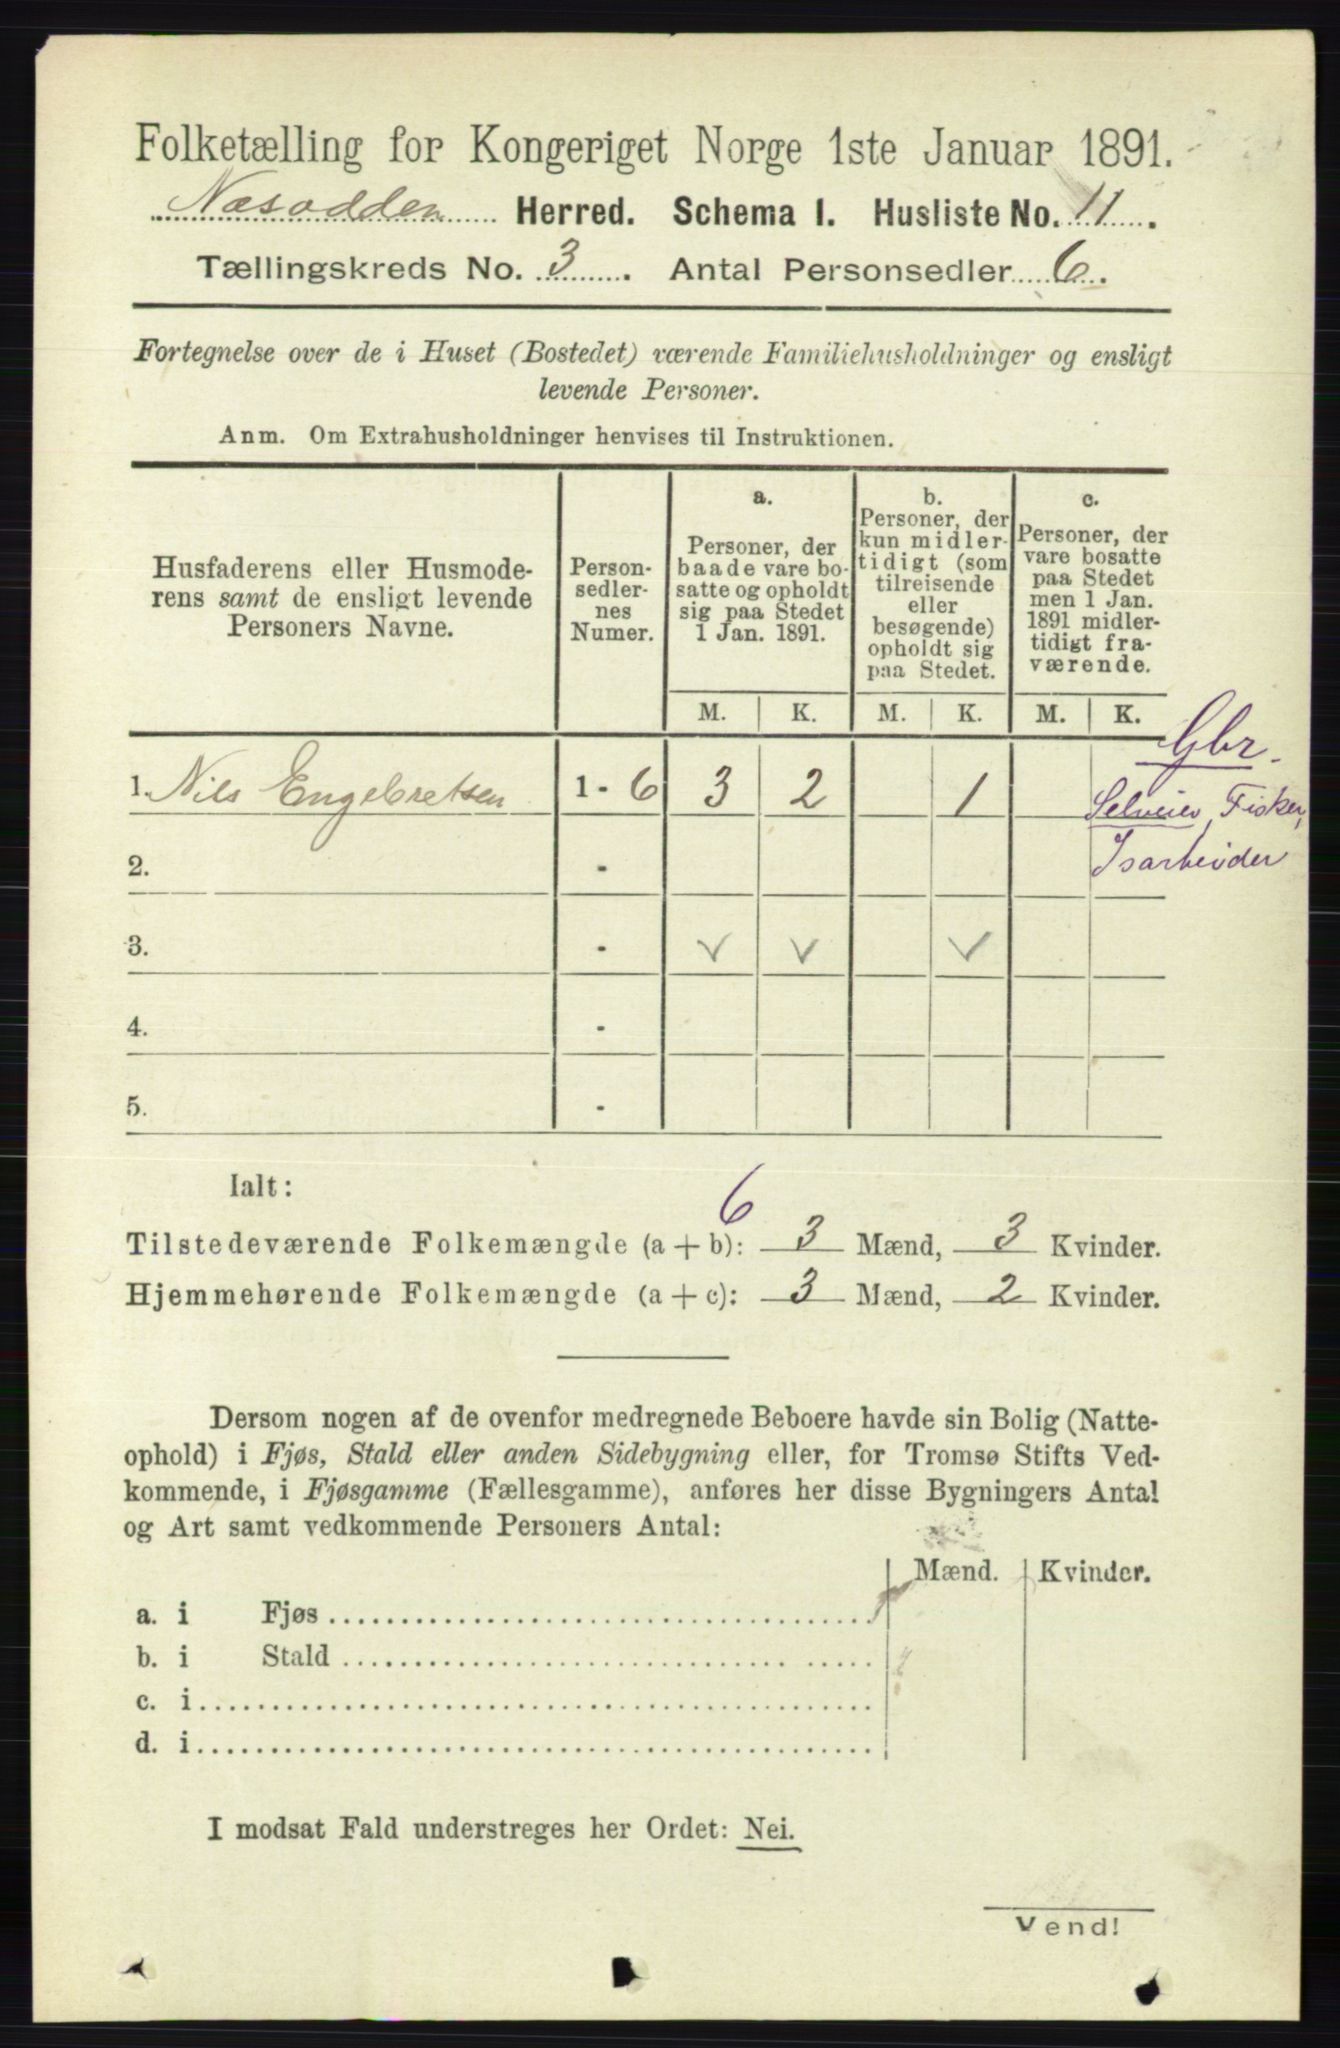 Folketælling for Kongeriget Norge 1ste Januar 1891.
Næsodden Herred. Schema I. Husliste No. 11.
Tællingskreds No. 3. Antal Personsedler 6.
Fortegnelse over de i Huset (Bostedet) værende Familiehusholdninger og ensligt
levende Personer.
Anm. Om Extrahusholdninger henvises til Instruktionen.
Husfaderens eller Husmode-
rens samt de ensligt levende
Personers Navne.
Person-
sedler-
nes
Numer.
a.
Personer, der
baade vare bo-
satte og opholdt
sig paa Stedet
1 Jan. 1891.
b.
Personer, der
kun midler-
tidigt (som
tilreisende
eller
besøgende)
opholdt sig
paa Stedet.
c.
Personer, der
vare bosatte
paa Stedet
men 1 Jan.
1891 midler-
tidigt fra-
værende.
M. K. M. K. M. K.
Gbr.
1. Nils Engebretsen 1 - 6 3 2 1
Selveier, Fisker,
Isarbeider
2. -
3. -
4. -
5. -
Ialt:
6
Tilstedeværende Folkemængde (a + b): 3 Mænd, 3 Kvinder.
Hjemmehørende Folkemængde (a + c): 3 Mænd, 2 Kvinder.
Dersom nogen af de ovenfor medregnede Beboere havde sin Bolig (Natte-
ophold) i Fjøs, Stald eller anden Sidebygning eller, for Tromsø Stifts Ved-
kommende, i Fjøsgamme (Fællesgamme), anføres her disse Bygningers Antal
og Art samt vedkommende Personers Antal:
Mænd. Kvinder.
a. i Fjøs
b. i Stald
c. i
d. i
I modsat Fald understreges her Ordet: Nei.
Vend!